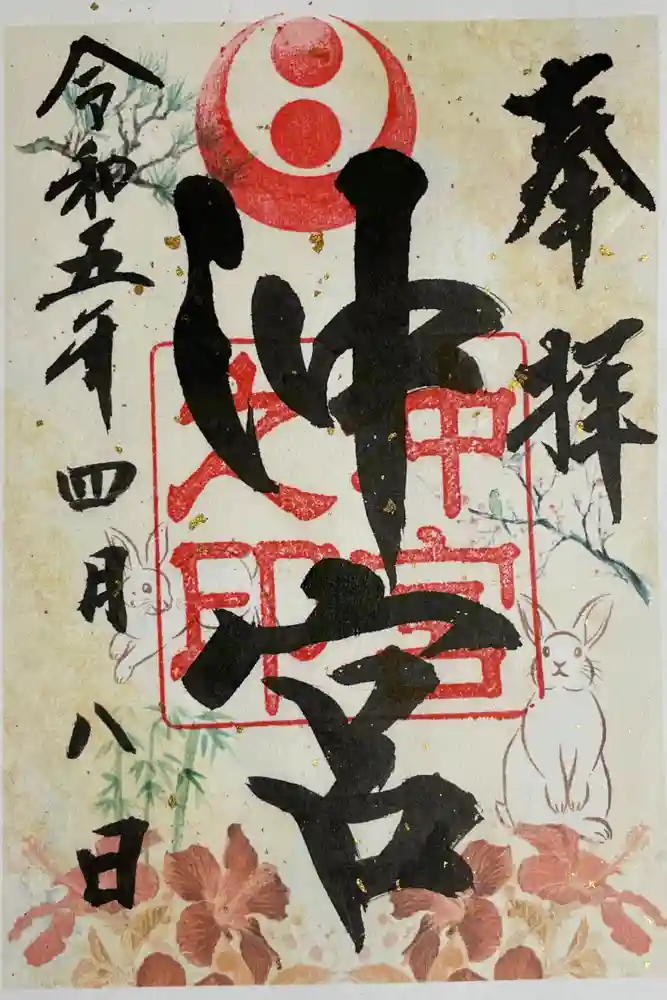 奉拝
沖宮
沖宮
之印
令和五年四月八日